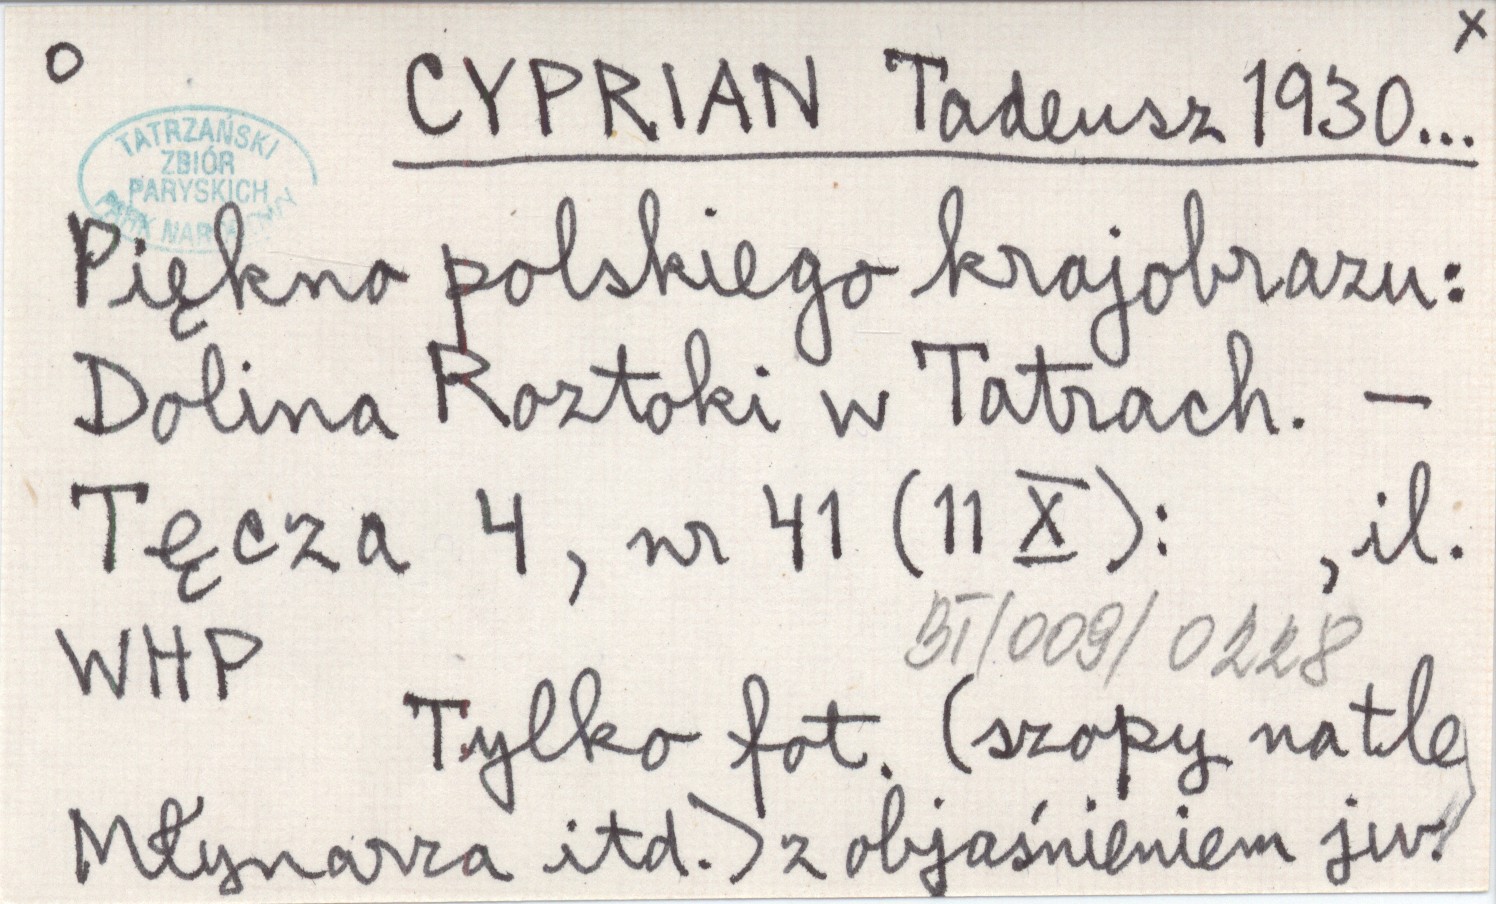 O
x
CYPRIAN Tadeusz 1930...
TATRZAŃSKI
ZBIÓR
PARYSKICH
PARK NARODOWY
Piękno polskiego krajobrazu:
Dolina Roztoki w Tatrach. —
Tęcza 4, nr 41 (11 X): , il.
BI/009/0228
WHP
Tylko fot. (szopy na tle
Młynarza itd.) z objaśnieniem jw.